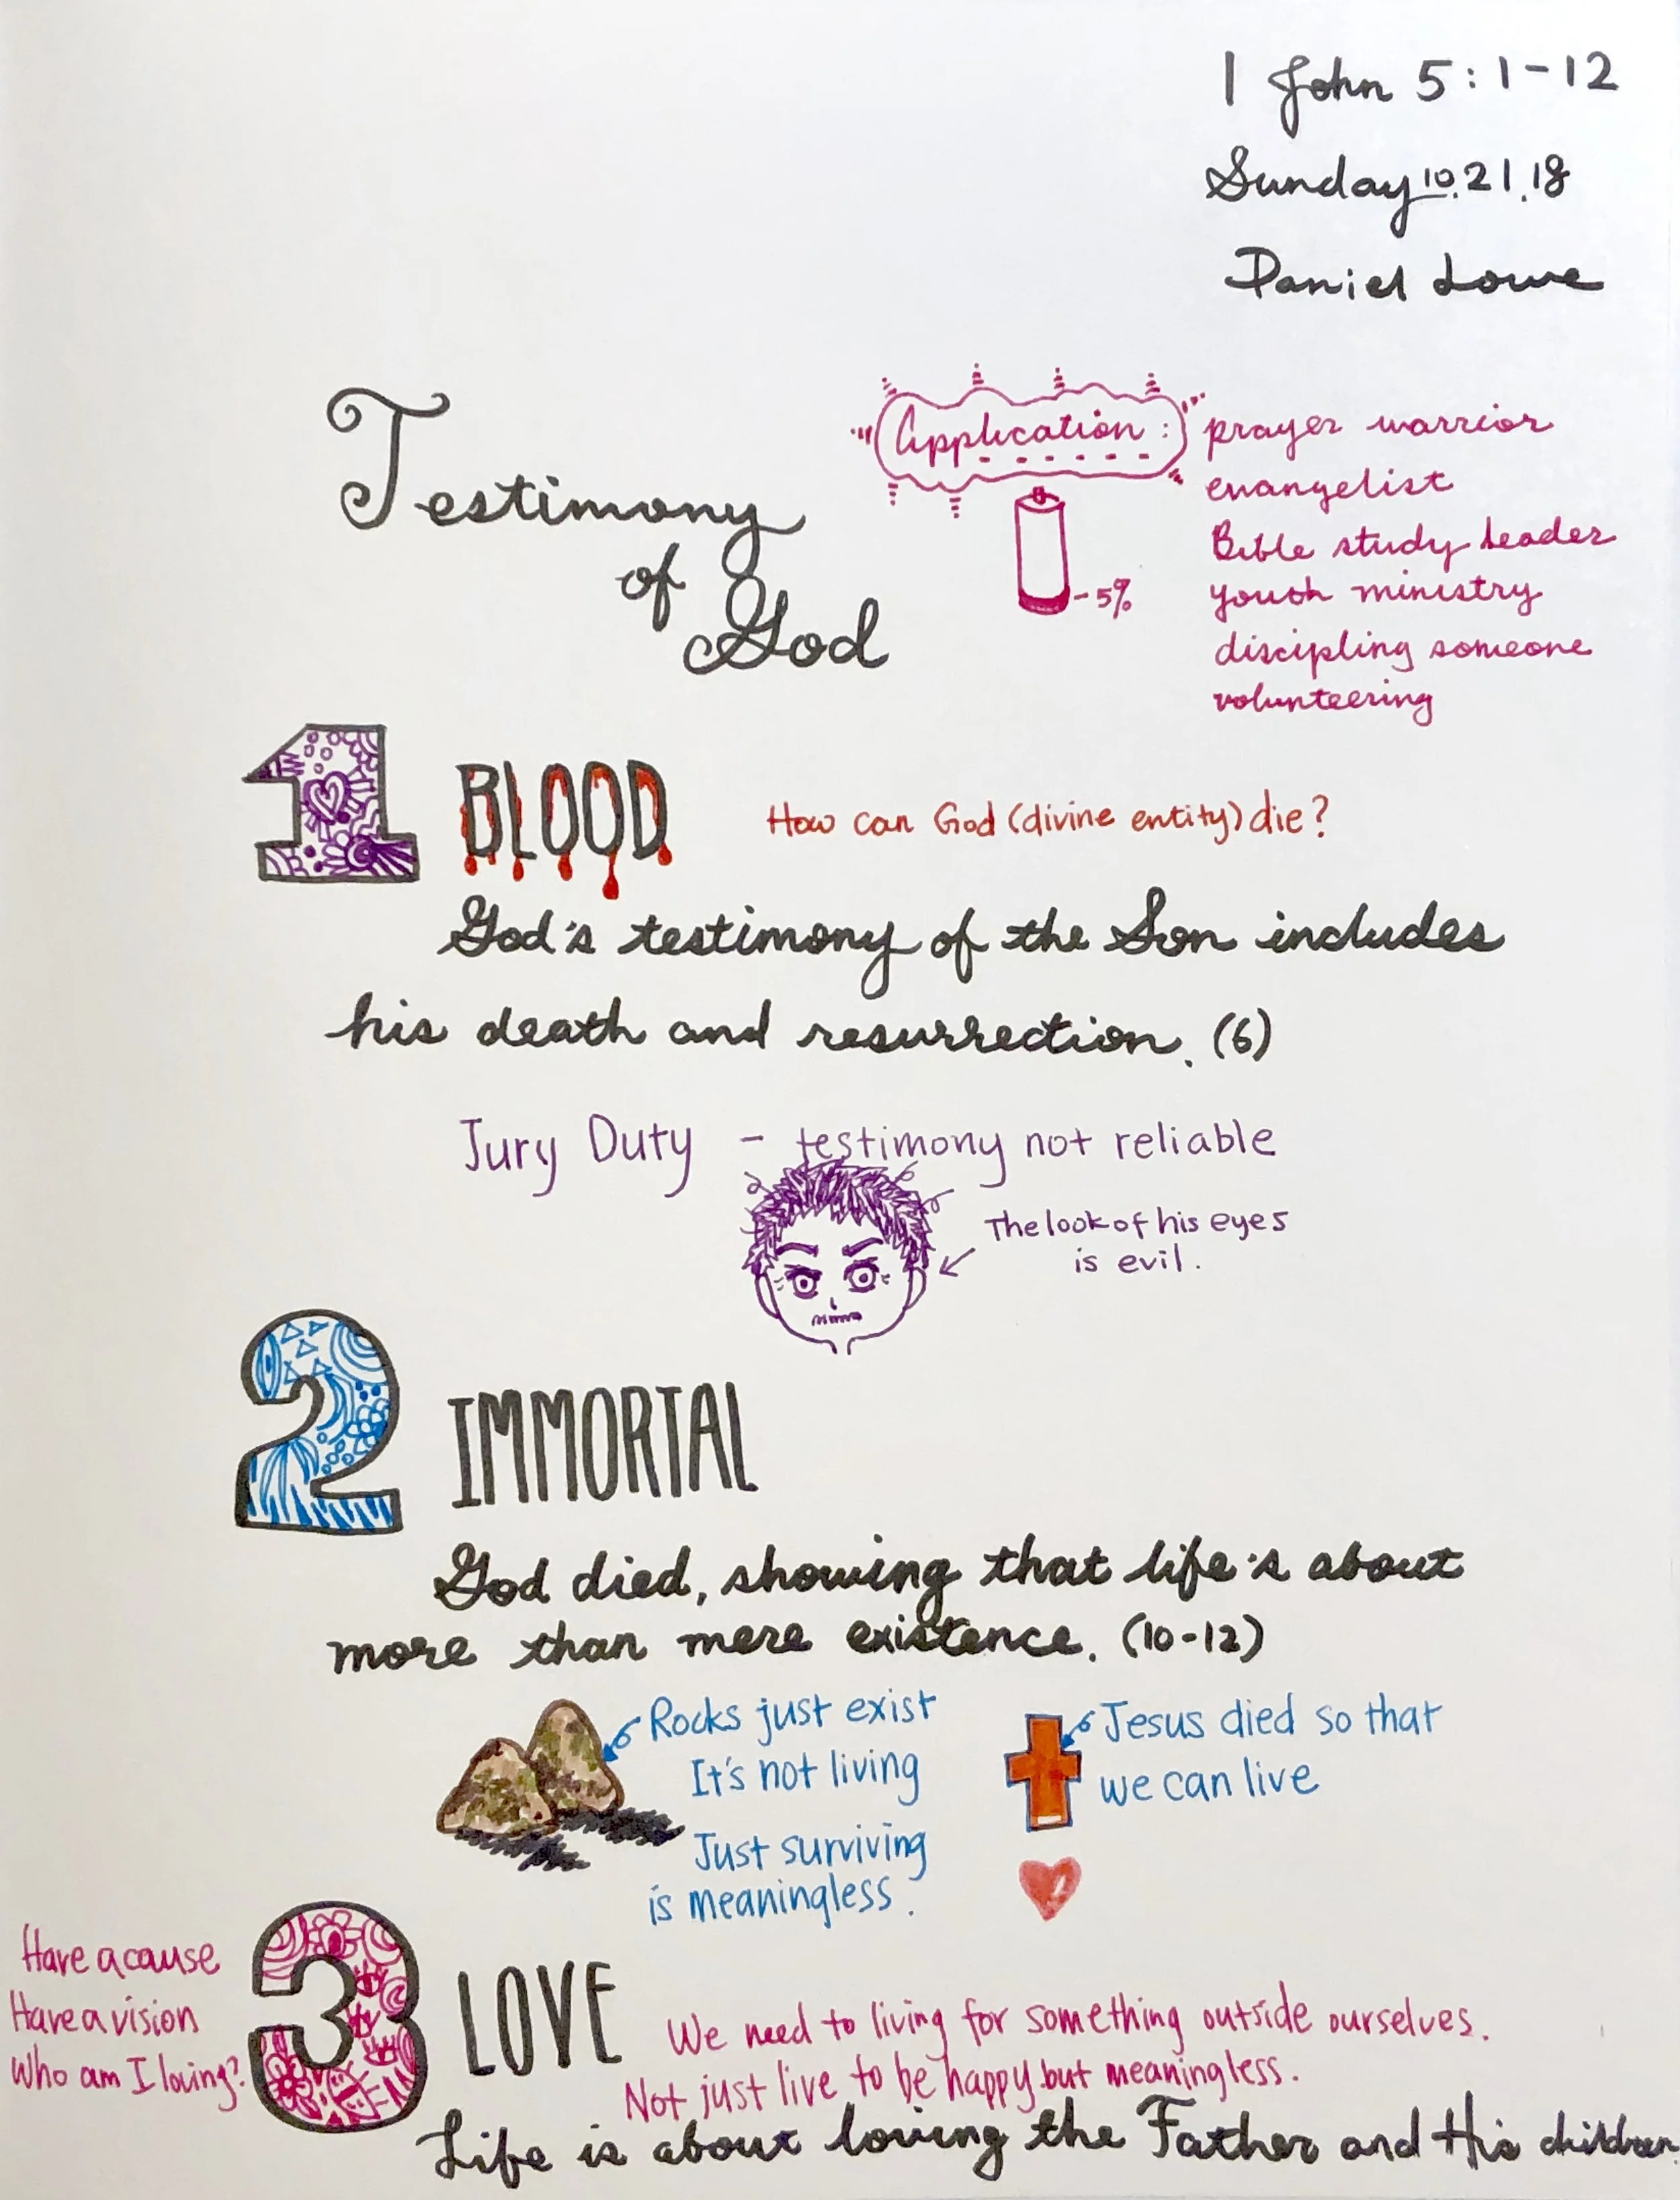 1 John 5:1-12
Sunday 10.21.18
Daniel Lowe
Testimony
of
God
Application:
prayer warrior
evangelist
Bible study leader
youth ministry
discipling someone
volunteering
-5%
1 BLOOD
How can God (divine entity) die?
God's testimony of the Son includes
his death and resurrection. (6)
Jury Duty - testimony not reliable
The look of his eyes
is evil.
2 IMMORTAL
God died, showing that life's about
more than mere existence. (10-12)
Rocks just exist
It's not living
Just surviving
is meaningless.
Jesus died so that
we can live
Have a cause
Have a vision
Who am I loving?
3 LOVE
We need to living for something outside ourselves.
Not just live to be happy but meaningless.
Life is about loving the Father and His children.